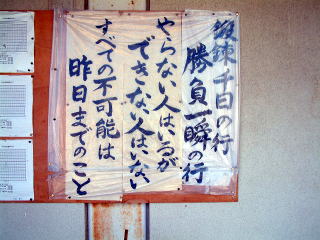 鍛錬千日の行
勝負一瞬の行
やらない人はいるが
できない人はいない
すべての不可能は
昨日までのこと